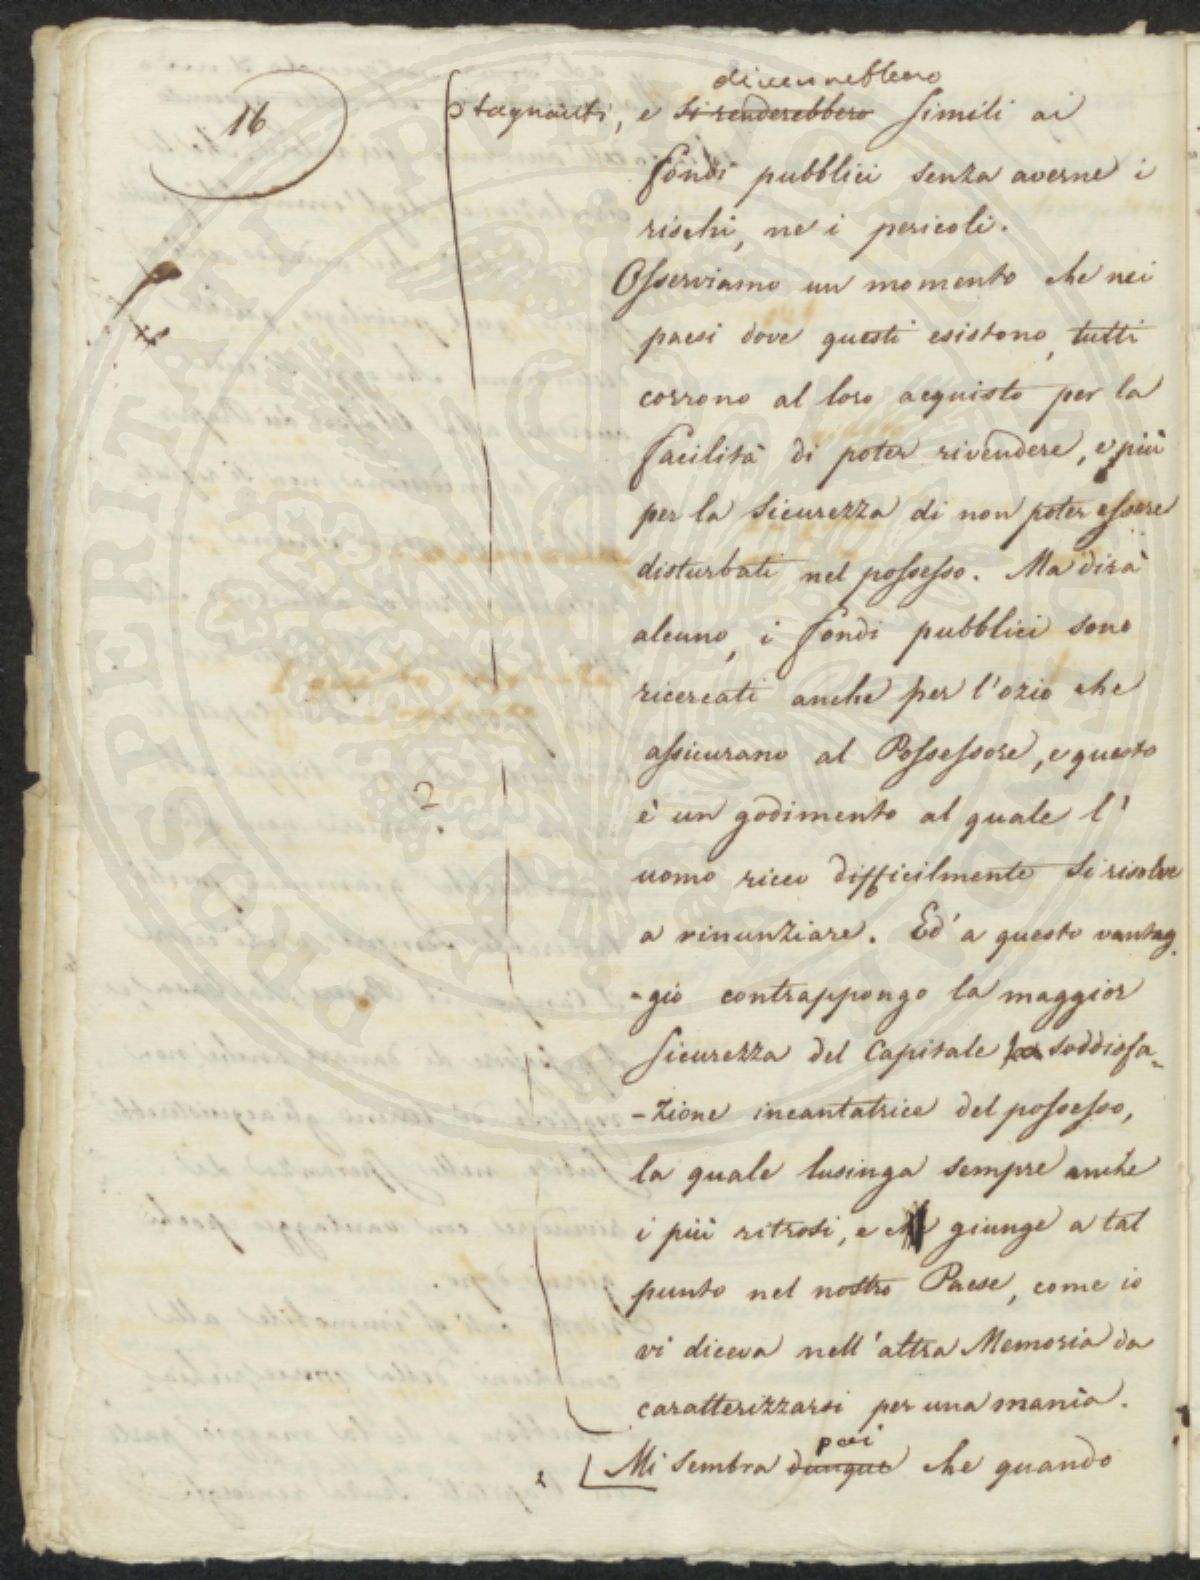 16
diverrebbero
stagnanti, e si renderebbero simili ai
fondi pubblici senza averne i
rischi, ne i pericoli.
Osserviamo un momento che nei
paesi dove questi esistono, tutti
corrono al loro acquisto per la
facilità di poter rivendere, e più
per la sicurezza di non poter essere
disturbati nel possesso. Ma dirà
alcuno, i fondi pubblici sono
ricercati anche per l'ozio che
assicurano al Possessore, e questo
è un godimento al quale l'
uomo ricco difficilmente si risolve
a rinunziare. Ed a questo vantag-
-gio contrappongo la maggior
sicurezza del Capitale la soddisfa-
-zione incantatrice del possesso,
la quale lusinga sempre anche
i più ritrosi, e giunge a tal
punto nel nostro Paese, come io
vi diceva nell'altra Memoria da
caratterizzarsi per una mania.
poi
Mi sembra dunque che quando
?
2
PROSPERITATI PUBLICAE AUGENDAE